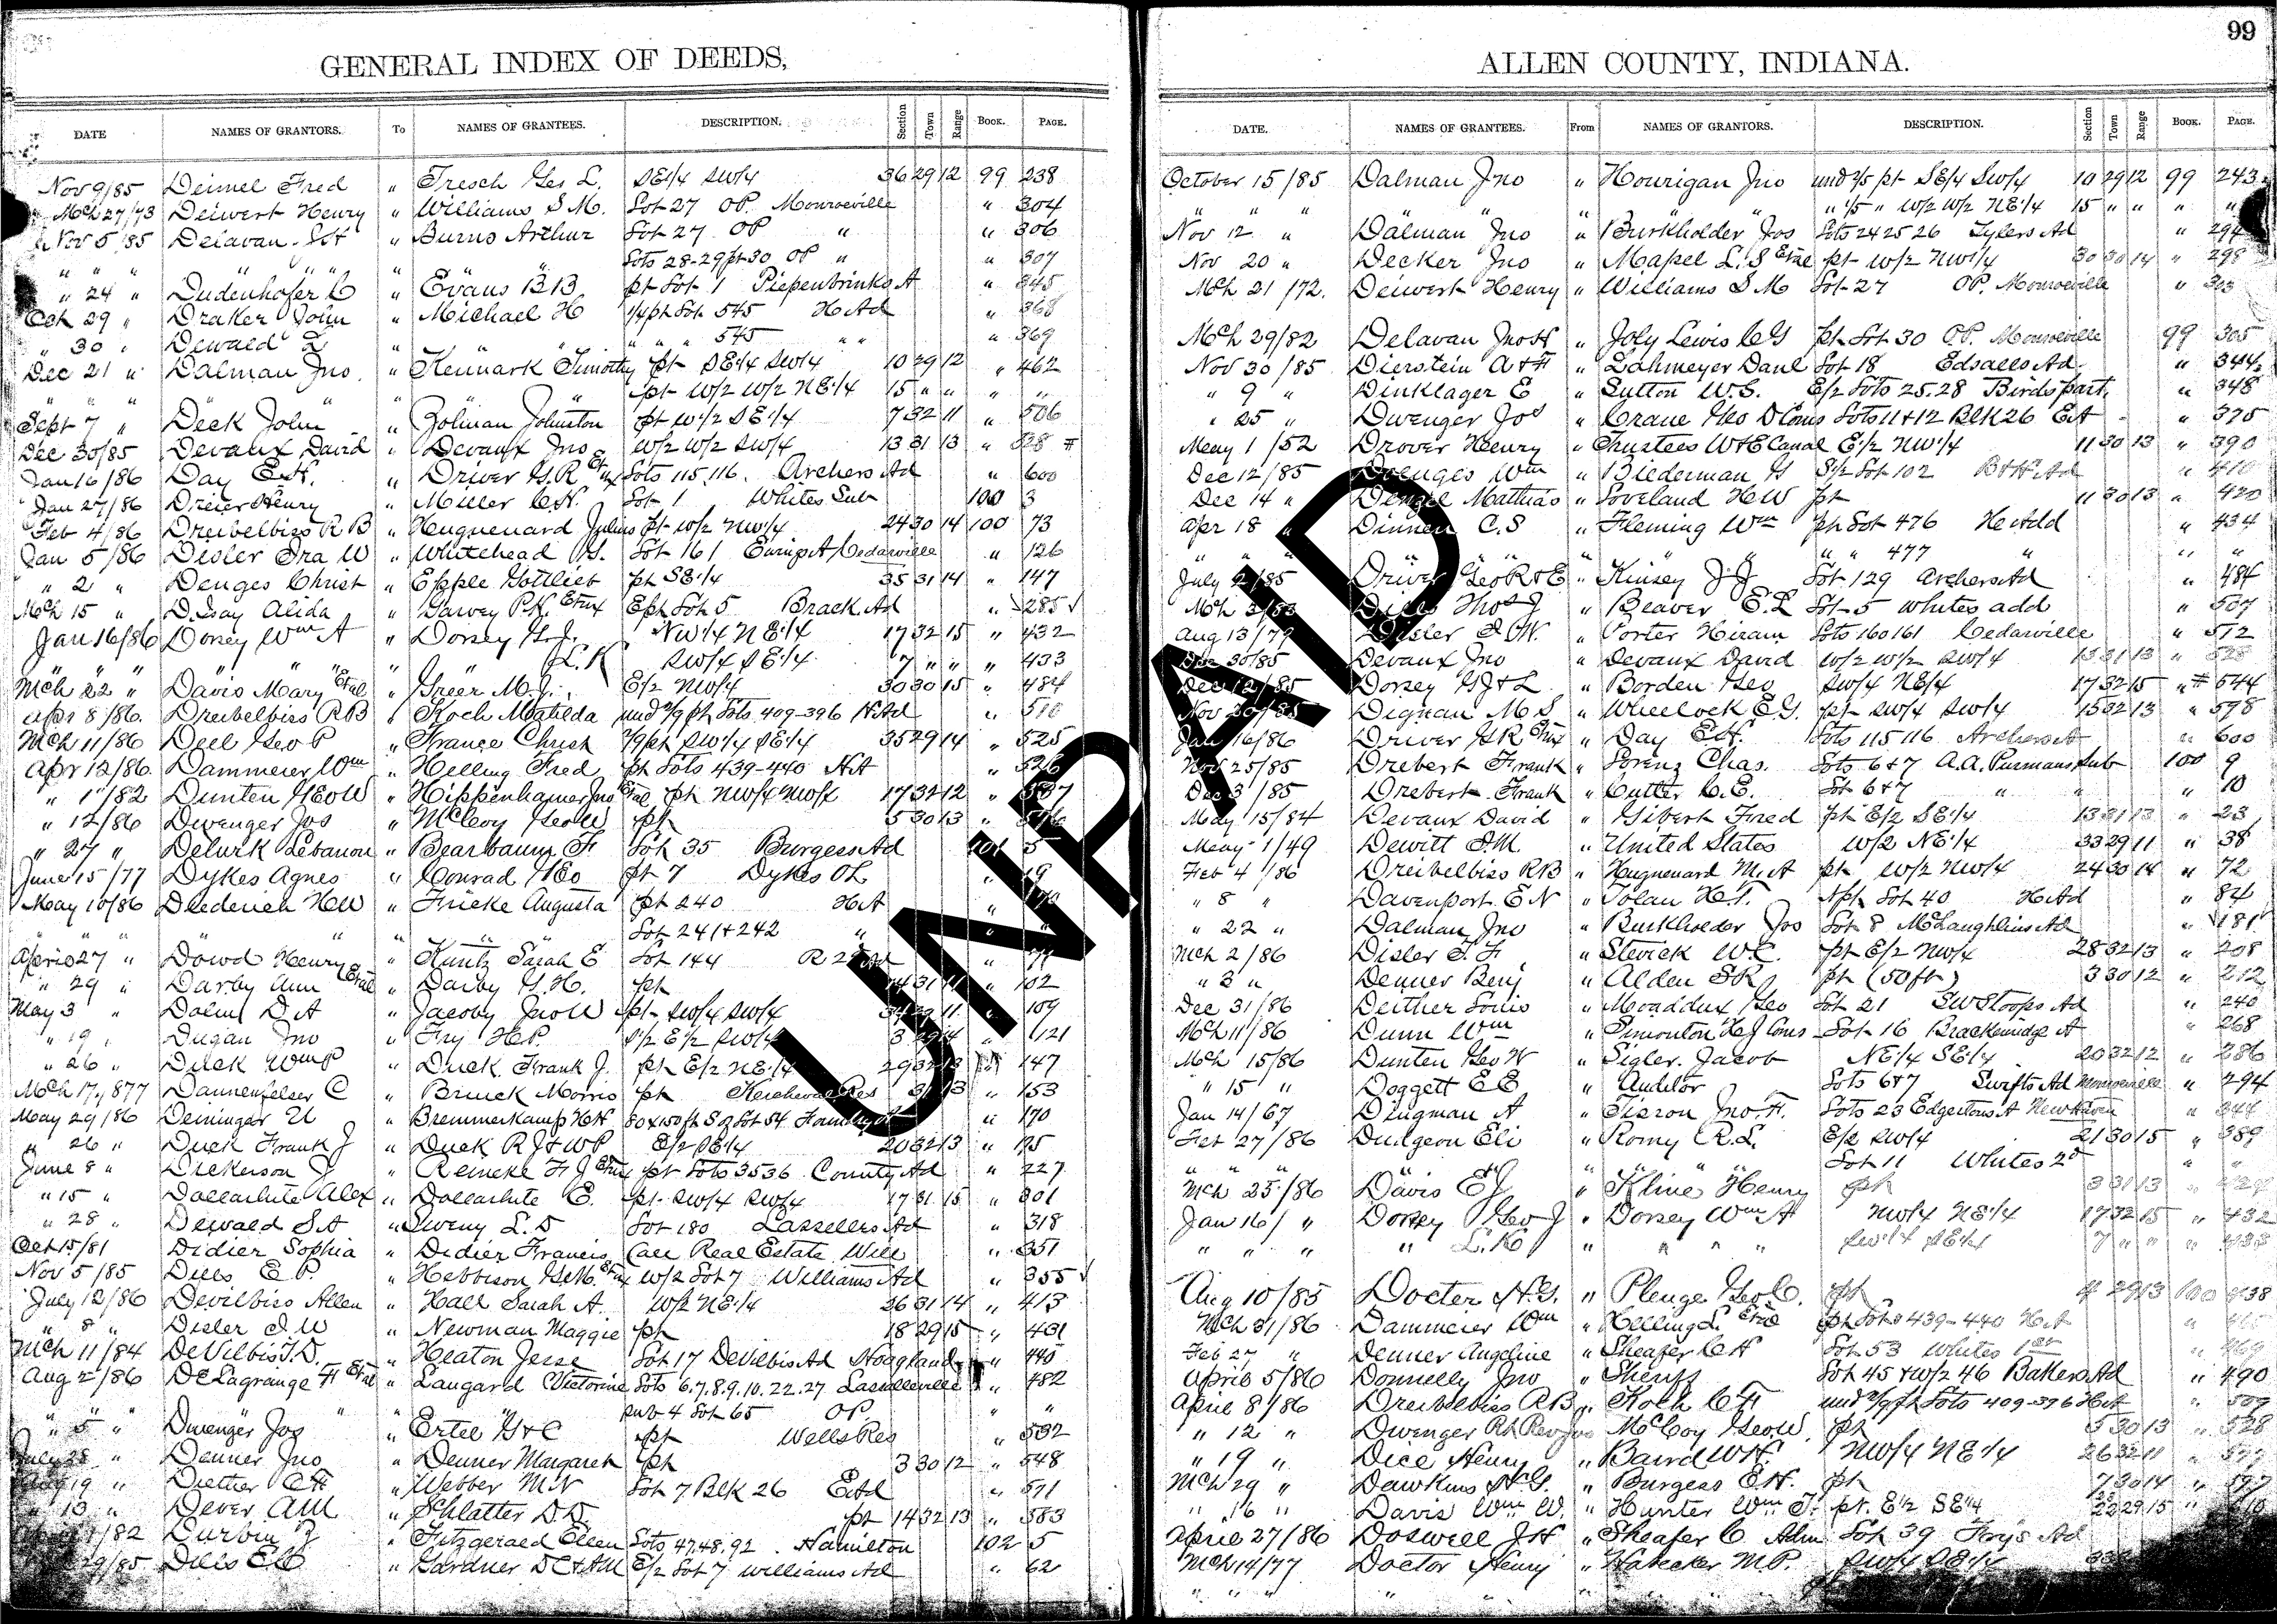 99
GENERAL INDEX OF DEEDS,
DATE NAMES OF GRANTORS. To NAMES OF GRANTEES. DESCRIPTION. Section Town Range BOOK. PAGE.
Nov 9/85 Deimel Fred " Tresch Geo L. SE1/4 SW1/4 36 29 12 99 238
Mch 27/73 Deiwert Henry " Williams S M. Lot 27 OP. Monroeville " 304
Nov 5/85 Delavan " Burns Arthur Lot 27 OP " " 306
" " " " " " " Lots 28-29 pt 30 OP " " 307
" 24 " Dudenhofer C " Evans B B. pt Lot 1 Piepenbrinks A " 345
Oct 29 " Draker John " Michael H 1/4 pt Lot 545 H Ad " 368
" 30 " Dewald L " " " " 545 " " " 369
Dec 21 " Dalman Jno. " Kennark Timothy pt SE1/4 SW1/4 10 29 12 " 462
" " " " " pt W/2 W/2 NE1/4 15 " " " "
Sept 7 " Deck John " Zolman Johnston pt W1/2 SE1/4 7 32 11 " 506
Dec 30/85 Devaux David " Devaux Jno W/2 W/2 SW/4 13 31 13 " 528 #
Jan 16/86 Day E.H. " Driver G.R Etux Lots 115,116. Archers Ad " 600
Jan 27/86 Dreier Henry " Miller C.H. Lot 1 Whites Sub 100 3
Feb 4/86 Dreibelbiss R B " Huguenard Julius pt W/2 NW1/4 24 30 14 100 73
Jan 5/86 Disler Ira W " Whitehead Lot 161 Cedarville " 126
" 2 " Denges Christ " Epple Gottlieb pt SE1/4 35 31 14 " 147
Mch 15 " D.Isay Alida " Garvey P.K. Etux E pt Lot 5 Brack. Ad " 285
Jan 16/86 Dorsey Wm A " Dorsey G.J. NW1/4 NE1/4 17 32 15 " 432
" " " " " " " " L.K SW/4 SE1/4 7 " " " 433
Mch 22 " Davis Mary Etal " Greer M.J. E/2 NW/4 30 30 15 " 484
Apr 8/86. Dreibelbiss R B " Koch Matilda und 2/9 pt Lots 409-396 H Ad " 510
Mch 11/86 Deel Geo P " France Christ 1/9 pt SW1/4 SE1/4 35 29 14 " 525
Apr 12/86. Dammeier Wm " Helling Fred pt Lots 439-440 H A " 526
" 1"/82 Dunten Geo W " Hippenhamer Jno Etal pt NW/4 NW/4 17 32 12 "
" 12/86 Dwenger Jos " McCoy Geo W pt 5 30 13 "
" 27 " Delurk Lebanon " Bearbaum F Lot 35 Burgess Ad 101 5
June 15/77 Dykes Agnes " Conrad Geo pt 7 Dykes OL " 19
May 10/86 Diederich H W " Fricke Augusta pt 240 H A "
" " " " " " Lot 241+242 " "
April 27 " Dowd Henry " Kuntz Sarah E Lot 144 R 2d Ad "
" 29 " Darby Ann Etal " Darby G. H. pt 14 31 11 " 102
May 3 " Dalm D A " Jacoby Jno W pt SW/4 SW/4 11 " 109
" 19 " Dugan Jno " Fry H.P. S1/2 E/2 SW/4 3 29 14 " 121
" 26 " Duck Wm P " Duck Frank J. pt E/2 NE1/4 29 32 13 " 147
Mch 17, 1877 Dannenfelser C " Brinck Morris pt Res 31 13 " 153
May 29/86 Deininger U " Bremmerkamp H H 80x150 ft S of Lot 54. " 170
" 26 " Duck Frank J " Duck R J & W P E/2 SE1/4 20 32 13 " 195
June 8 " Dickerson J " Reineke F J Etux pt Lots 35 36 County Ad " 227
" 15 " Dollarhite Alex " Dollarhite E. pt SW/4 SW/4 17 31 15 " 301
" 28 " Dewald S A " Sweny L. D Lot 180 Lassellers Ad " 318
Oct 15/81 Didier Sophia " Didier Francis Call Real Estate Will " 351
Nov 5/85 Dills E P. " Hettison Etux W/2 Lot 7 Williams Ad " 355
July 12/86 Devilbiss Allen " Hall Sarah A. W/2 NE1/4 36 31 14 " 413
" 8 " Disler I W " Newman Maggie pt 18 29 15 " 431
Mch 11/84 DeVilbis I.D. " Heaton Jesse Lot 17 DeVilbis Ad Hoagland " 440
Aug 2/86 DeLagrange F Etal " Laugard Victorine Lots 6.7.8.9.10.22.27 Lasselleville " 482
" " " " " sub 4 Lot 65 OP. " "
" 5 " Dwenger Jos " Ertel G & C pt Wells Res " 532
July 28 " Denner Jno " Denner Margaret pt 3 30 12 " 548
Aug 19 " Diether C H " Webber M N Lot 7 Blk 26 E Ad " 571
" 13 " Dever A M " Schlatter D D. pt 14 32 13 " 583
/82 Durbin " Fitzgerald Ellen Lots 47,48,92. Hamilton 102 5
29/85. Dills E C " Gardner D C & A M E/2 Lot 7 Williams Ad " 62
ALLEN COUNTY, INDIANA.
DATE. NAMES OF GRANTEES. From NAMES OF GRANTORS. DESCRIPTION. Section Town Range BOOK. PAGE.
October 15/85 Dalman Jno " Hourigan Jno und 2/5 pt SE/4 SW/4 10 29 12 99 243
" " " " " " " 1/5 " W/2 W/2 NE1/4 15 " " " "
Nov 12 " Dalman Jno " Burkholder Jos Lots 24 25 26 Tylers Ad " 294
Nov 20 " Decker Jno " Mapel L. S Etal pt W/2 NW1/4 30 30 14 " 298
Mch 21/72. Deiwert Henry " Williams S M Lot 27 OP. Monroeville " 303
Mch 29/82 Delavan Jno H " Joly Lewis C G pt Lot 30 OP. Monroeville 99 305
Nov 30/85 Dierstein A & F " Lahmeyer Danl Lot 18 Edsalls Ad. " 344
" 9 " Dinklager E " Sutton W. S. E/2 Lots 25.28 Birds part. " 348
" 25 " Dwenger Jos " Crane Geo D Coms Lots 11+12 Blk 26 E A " 375
May 1/52 Drover Henry " Trustees W & E Canal E1/2 NW1/4 11 30 13 " 390
Dec 12/85 Doenges Wm " Biederman G S1/2 Lot 102 B+H Ad " 410
Dec 14 " Dengel Mathias " Loveland H W pt 11 30 13 " 420
Apr 18 " Dinnen C. S " Fleming Wm pt Lot 476 H Add " 434
" " " " " " " " " " 477 " " "
July 2/85 Driver Geo R & E " Kinsey J J Lot 129 Archers Ad " 484
Mch 3/83 Dills Thos J " Beaver E. L Lot 5 Whites add " 507
Aug 13/79 Disler I. W. " Porter Hiram Lots 160 161 Cedarville " 512
Dec 30/85 Devaux Jno " Devaux David W/2 W/2 SW/4 13 31 13 " 528
Dec 12/85 Dorsey G J & L " Borden Geo SW/4 NE/4 17 32 15 " # 544
Nov 20/85 Dignan M S " Wheelock E. G. pt SW/4 SW/4 15 32 13 " 598
Jan 16/86 Driver G R Etux " Day E.H. Lots 115 116 Archers A " 600
Nov 25/85 Drebert Frank " Lorenz Chas. Lots 6+7 A.A. Purmans Sub 100 9
Dec 3/85 Drebert Frank " Cutler C. E. Lot 6+7 " " " 10
May 15/84 Devaux David " Gibert Fred pt E/2 SE1/4 13 31 13 " 23
May 1/49 Dewitt I M. " United States W/2 NE1/4 33 29 11 " 38
Feb 4/86 Dreibelbiss R B " Huguenard M. A pt W/2 NW/4 24 30 14 " 72
" 8 " Davenport E N " Tolan H. T. N pt Lot 40 H Ad " 84
" 22 " Dalman Jno " Burkholder Jos Lot 8 McLaughlins Ad " 181
Mch 2/86 Disler T. F " Sterick W. C. pt E/2 NW/4 28 32 13 " 208
" 3 " Denner Benj " Alden S R pt (50ft) 3 30 12 " 212
Dec 31/86 Deither Louis " Moaddux Geo Lot 21 S W Stoops Ad " 240
Mch 11/86 Dunn Wm " Simonton H J Coms Lot 16 Brackenridge A " 268
Mch 15/86 Dunten Geo W " Sigler. Jacob NE1/4 SE1/4 20 32 12 " 286
" 15 " Doggett E E " Auditor Lots 6+7 Swifts Ad Monroeville " 294
Jan 14/67 Dingman A " Tisron Jno. F. Lots 23 Edgertons A New Haven " 344
Feb 27/86 Dudgeon Eli " Romy R. L. E/2 SW/4 21 30 15 " 389
" " " " " " " " Lot 11 Whites 2d " "
Mch 25/86 Davis E J " Kline Henry pt 3 31 13 " 424
Jan 16/ " Dorsey Geo J " Dorsey Wm A NW/4 NE1/4 17 32 15 " 432
" " " " L.K " " " " SW1/4 SE1/4 7 " " " 433
Aug 10/85 Docter H. G. " Plenge Geo C. pt 4 29 13 100 438
Mch 31/86 Dammeier Wm " Helling L. Etal pt Lots 439-440 H A "
Feb 27 " Denner Angeline " Sheafer C H Lot 53 Whites 1st " 469
April 5/86 Donnelly Jno " Sheriff Lot 45 + W/2 46 Bakers Ad " 490
April 8/86 Dreibelbiss R B " Koch C F und 2/9 pt Lots 409-396 H A " 509
" 12 " Dwenger Rt Rev Jos " McCoy Geo W. pt 5 30 13 " 528
" 19 " Dice Henry " Baird W H. NW/4 NE1/4 26 32 11 "
Mch 29 " Dawkins H. G. " Burgess E H. pt 7 30 14 " 597
" 16 " Davis Wm W. " Hunter Wm T. pt. E1/2 SE1/4 22 29 15 "
April 27/86 Doswell J H " Sheafer C Adm Lot 39 Frys Ad
Mch 14/77 Doctor Henry " Hatecker M. P. SW/4 SE1/4
" " " "
UNPAID